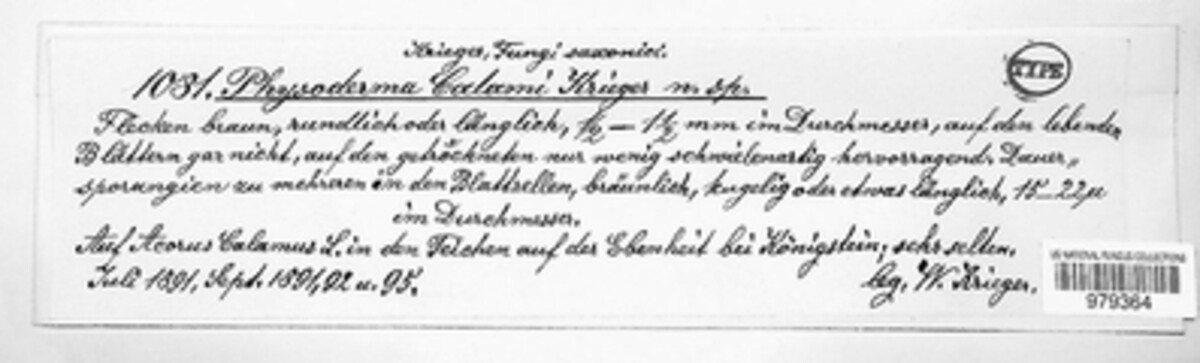 Krieger, Fungi saxonici.
TYPE
1031. Physoderma Calami Krieger n. sp.
Flecken braun, rundlich oder länglich, ½ — 1½ mm im Durchmesser, auf den lebenden
Blättern gar nicht, auf den getrockneten nur wenig schwielenartig hervorragend. Dauer„
sporangien zu mehreren in den Blattzellen, bräunlich, kugelig oder etwas länglich, 15—22µ
im Durchmesser.
Auf Acorus Calamus L. in den Teichen auf der Ebenheit bei Königstein; sehr selten.
Juli 1891, Sept. 1891, 92 u. 95.
lg. W. Krieger.
US NATIONAL FUNGUS COLLECTIONS
979364